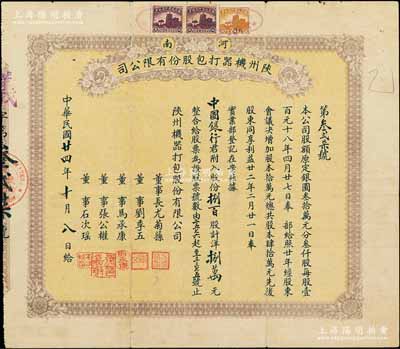 上海陽明拍賣有限公司
河南
陝州機器打包股份有限公司
第叁弍柒號
本公司股額原定銀圓叁拾萬元分叁仟股每股壹
百元十八年四月廿七日奉 部給照廿年經股東
會議決增加股本拾萬元總共股本肆拾萬元先後
股東同享利益廿二年二月廿一日奉
實業部登記在案當據
中國銀行君附入股份捌百股計洋捌萬元
整合給股票為證股票號數由
號止
陝州機器打包股份有限公司
董事長尤菊蓀
董事劉季五
董事馬永康
董事張公權
董事石次瑤
中華民國廿四年十月八日給
上海陽明拍賣有限公司